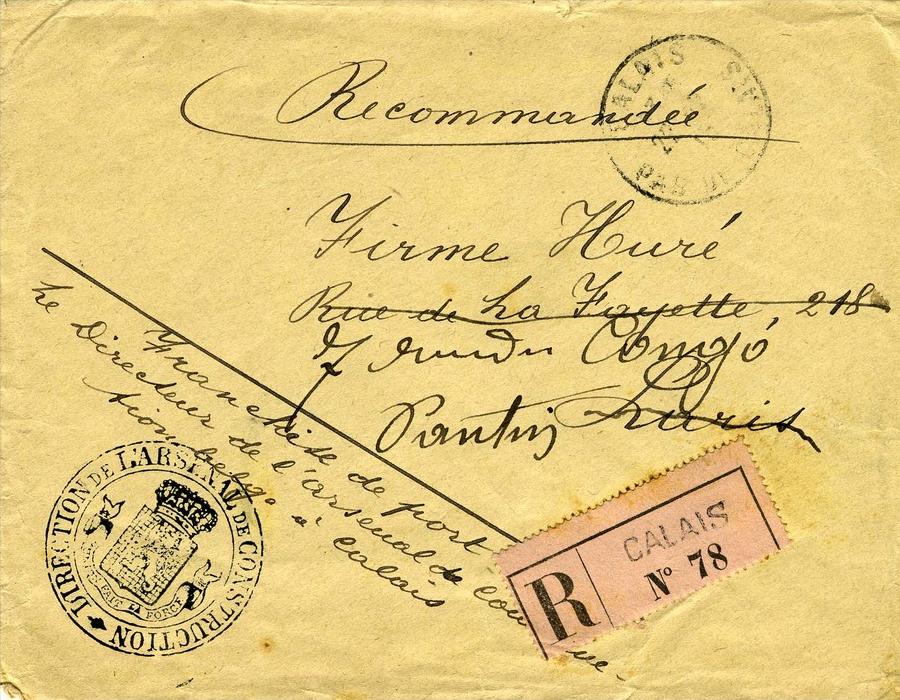 Recommandée
CALAIS
PAR DE
Firme Huré
Rue de La Fayette, 218
7 Congo
Pantin Paris
Franchise de port
Le Directeur de l'arsenal de
tion belge à Calais
DIRECTION DE L'ARSENAL DE CONSTRUCTION
FAIT LA FORCE
R
CALAIS
N° 78